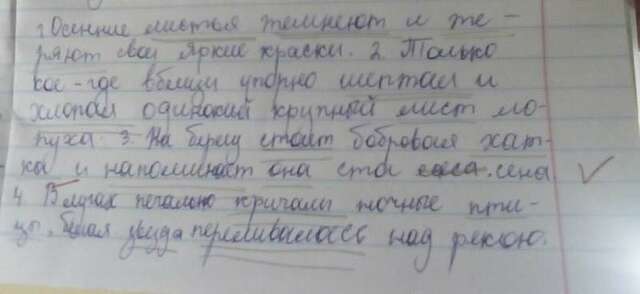 1 Осенние листья темнеют и те-
ряют свои яркие краски. 2. Только
кое-где вблизи упорно шептал и
хлопал одинокий крупный лист ло-
пуха. 3. На берегу стоит бобровая хат-
ка и напоминает она стог сена
4. В лугах печально кричали ночные пти-
цы, белая звезда переливалась над рекою.